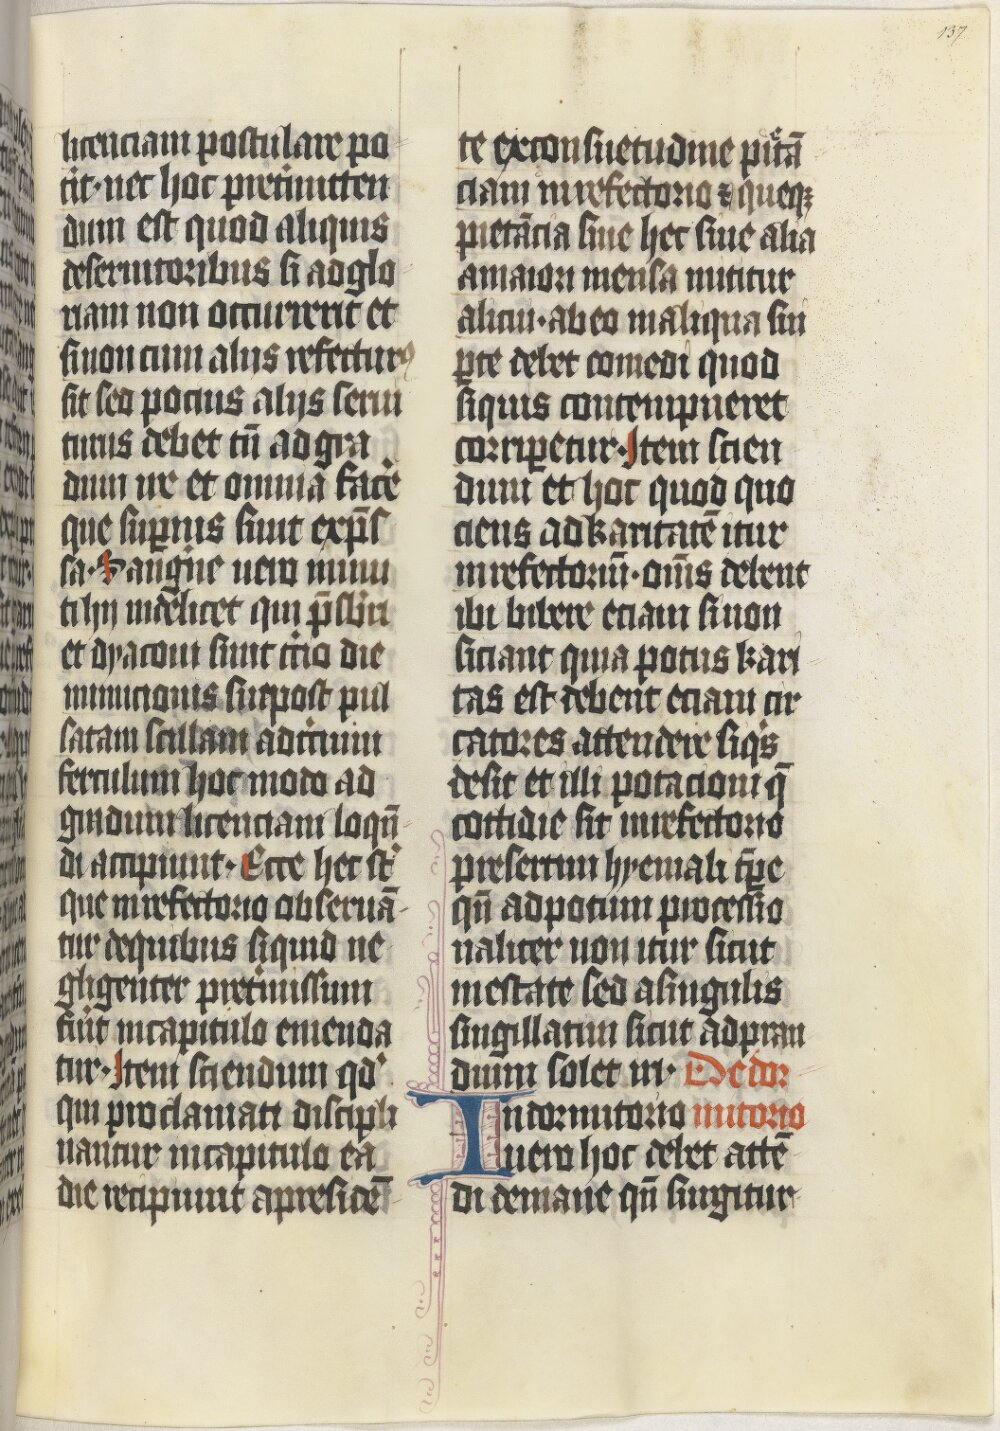 137
licenciam postulare po
tit· nec hoc pretimitten
dum est quod aliquis
deseruitoribus si adglo
riam non occurrerit et
sinon cum alijs refectur9
sit sed pocius alijs serui
turus debet tn̄ ad gra
dum ire et omnia facē
que supius sunt exp̄s
sa· Sangine uero minu
ti hij uidelicet qui p̄sbiri
et dyaconi sunt tcio die
minucionis sue post pul
satam scillam ad tcium
ferculum hoc modo ad
gndum licenciam loqn̄
di accipiunt· Ecce hec st
que inrefectorio obseruā
tur dequibus siquid ne
gligenter pretmissum
fuit incapitulo emenda
tur· Item sciendum qd
qui proclamati discipli
nantur incapitulo ea
die recipiunt apresidē
te exconsuetudine pitā
ciam inrefectorio ⁊ queqꝫ
pietācia siue hec siue alia
amaiori mensa mittitur
alicui· abeo inaliqua sui
ꝑte debet comedi quod
siquis contempneret
corripetur· Item scien
dum et hoc quod quo
ciens adkaritatē itur
inrefectoriū· om̄s debent
ibi bibere eciam sinon
siciant quia potus kari
tas est debent eciam cir
catores attendere siqis
desit et illi potacioni q̄
cottidie fit inrefectorio
presertim hyemali tp̄e
qn̄ adpotum processio
naliter non itur sicut
inestate sed asingulis
singillatim sicut adpran
dium solet iri· De dor
Indormitorio mitorio
uero hoc debet attē
di demane qn̄ surgitur